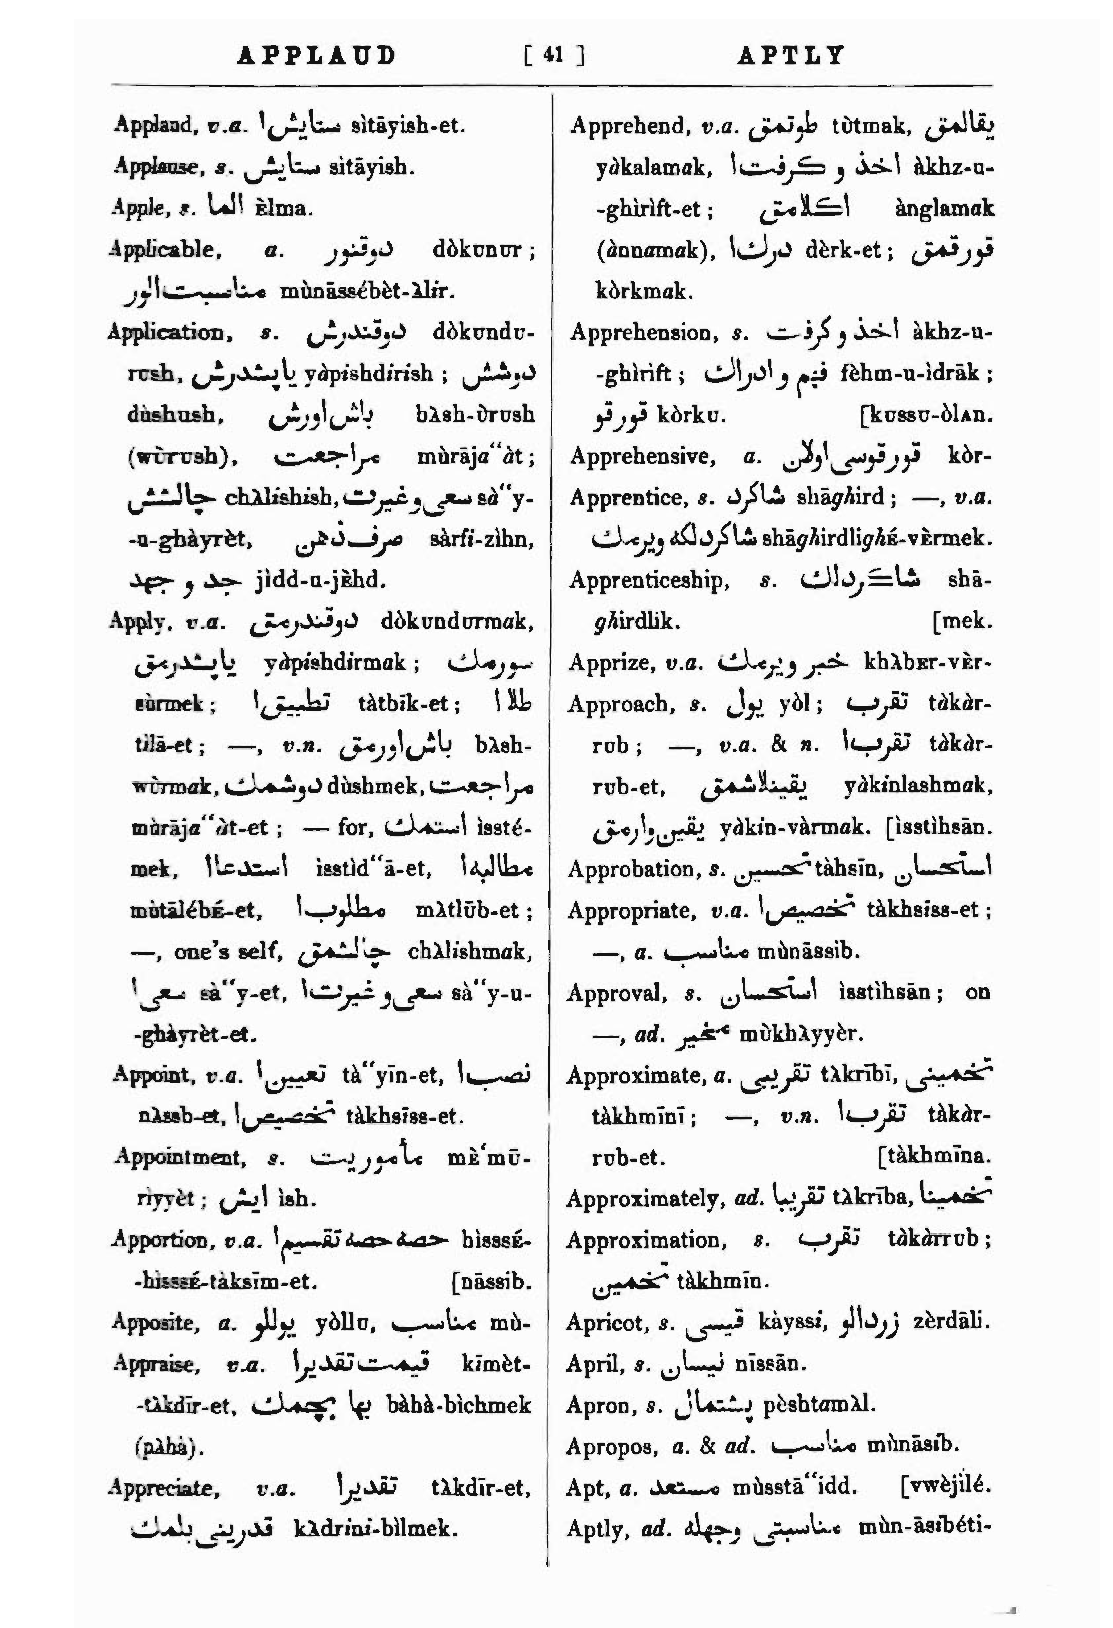 APPLAUD [ 41 ] APTLY
Applaud, v.a. ستایش ا sìtāyish-et.
Applause, s. ستایش sìtāyish.
Apple, s. الما Èlma.
Applicable, a. دوقنور dòkunur;
مناسبت الور mùnāssébèt-λlir.
Application, s. دوقندرش dòkundu-
rush, یاپشدرش yàpishdirish; دوشش
dùshush, باش اورش bλsh-ùrush
(wùrush), مراجعت mùrāja“àt;
چالشش chλlishish, سعی و غیرت sà“y-
-u-ghàyrèt, صرف ذهن sàrfi-zìhn,
جد و جهد jìdd-u-jÈhd.
Apply, v.a. دوقندرمق dòkundurmak,
یاپشدرمق yàpishdirmak; سورمك
sùrmek; تطبیق ا tàtbīk-et; طلا ا
tilā-et; —, v.n. باش اورمق bλsh-
wùrmak, دوشمك dùshmek, مراجعت ا
mùrāja“àt-et; — for, استمك ìssté-
mek, استدعا ا isstìd“ā-et, مطالبه ا
mùtālébÉ-et, مطلوب ا mλtlūb-et;
—, one's self, چالشمق chλlishmak,
سعی ا sà“y-et, سعی و غیرت ا sà“y-u-
-ghàyrèt-et.
Appoint, v.a. تعیین ا tà“yīn-et, نصب ا
nλssb-et, تخصیص ا tàkhsīss-et.
Appointment, s. مأموریت mÈ‘mū-
riyyèt; ایش ìsh.
Apportion, v.a. حصه حصه تقسیم ا hìsssÉ-
-hìsssÉ-tàksīm-et. [nāssib.
Apposite, a. یوللو yòllu, مناسب mù-
Appraise, v.a. قیمت تقدیر ا kīmèt-
-tλkdīr-et, بها بچمك bàhà-bìchmek
(pλhà).
Appreciate, v.a. تقدیر ا tλkdīr-et,
قدرینی بلمك kλdrini-bìlmek.
Apprehend, v.a. طوتمق tùtmak, یقالمق
yàkalamak, اخذ و کرفت ا àkhz-u-
-ghìrìft-et; اکلامق ànglamak
(ànnamak), درك ا dèrk-et; قورقمق
kòrkmak.
Apprehension, s. اخذ و کرفت àkhz-u-
-ghìrìft; فهم و ادراك fèhm-u-ìdrāk;
قورقو kòrku. [kussu-òlan.
Apprehensive, a. قورقوسی اولان kòr-
Apprentice, s. شاکرد shāghird; —, v.a.
شاکردلکه ویرمك shāghirdlighÉ-vÈrmek.
Apprenticeship, s. شاکردلك shā-
ghirdlik. [mek.
Apprize, v.a. خبر ویرمك khλbEr-vÈr-
Approach, s. یول yòl; تقرب tàkàr-
rub; —, v.a. & n. تقرب ا tàkàr-
rub-et, یقینلاشمق yàkinlashmak,
یقین وارمق yàkin-vàrmak. [ìsstìhsān.
Approbation, s. تحسین tàhsīn, استحسان
Appropriate, v.a. تخصیص ا tàkhsīss-et;
—, a. مناسب mùnāssib.
Approval, s. استحسان ìsstìhsān; on
—, ad. مخیر mùkhλyyèr.
Approximate, a. تقریبی tλkrībī, تخمینی
tàkhmīnī; —, v.n. تقرب ا tàkàr-
rub-et. [tàkhmīna.
Approximately, ad. تقریبا tλkrība, تخمینا
Approximation, s. تقرب tàkàrrub;
تخمین tàkhmīn.
Apricot, s. قیسی kàyssi, زردالو zèrdāli.
April, s. نیسان nīssān.
Apron, s. پشتمال pèshtamλl.
Apropos, a. & ad. مناسب mùnāsib.
Apt, a. مستعد mùsstā“idd. [vwèjìlé.
Aptly, ad. مناسبتی وجهله mùn-āsibéti-